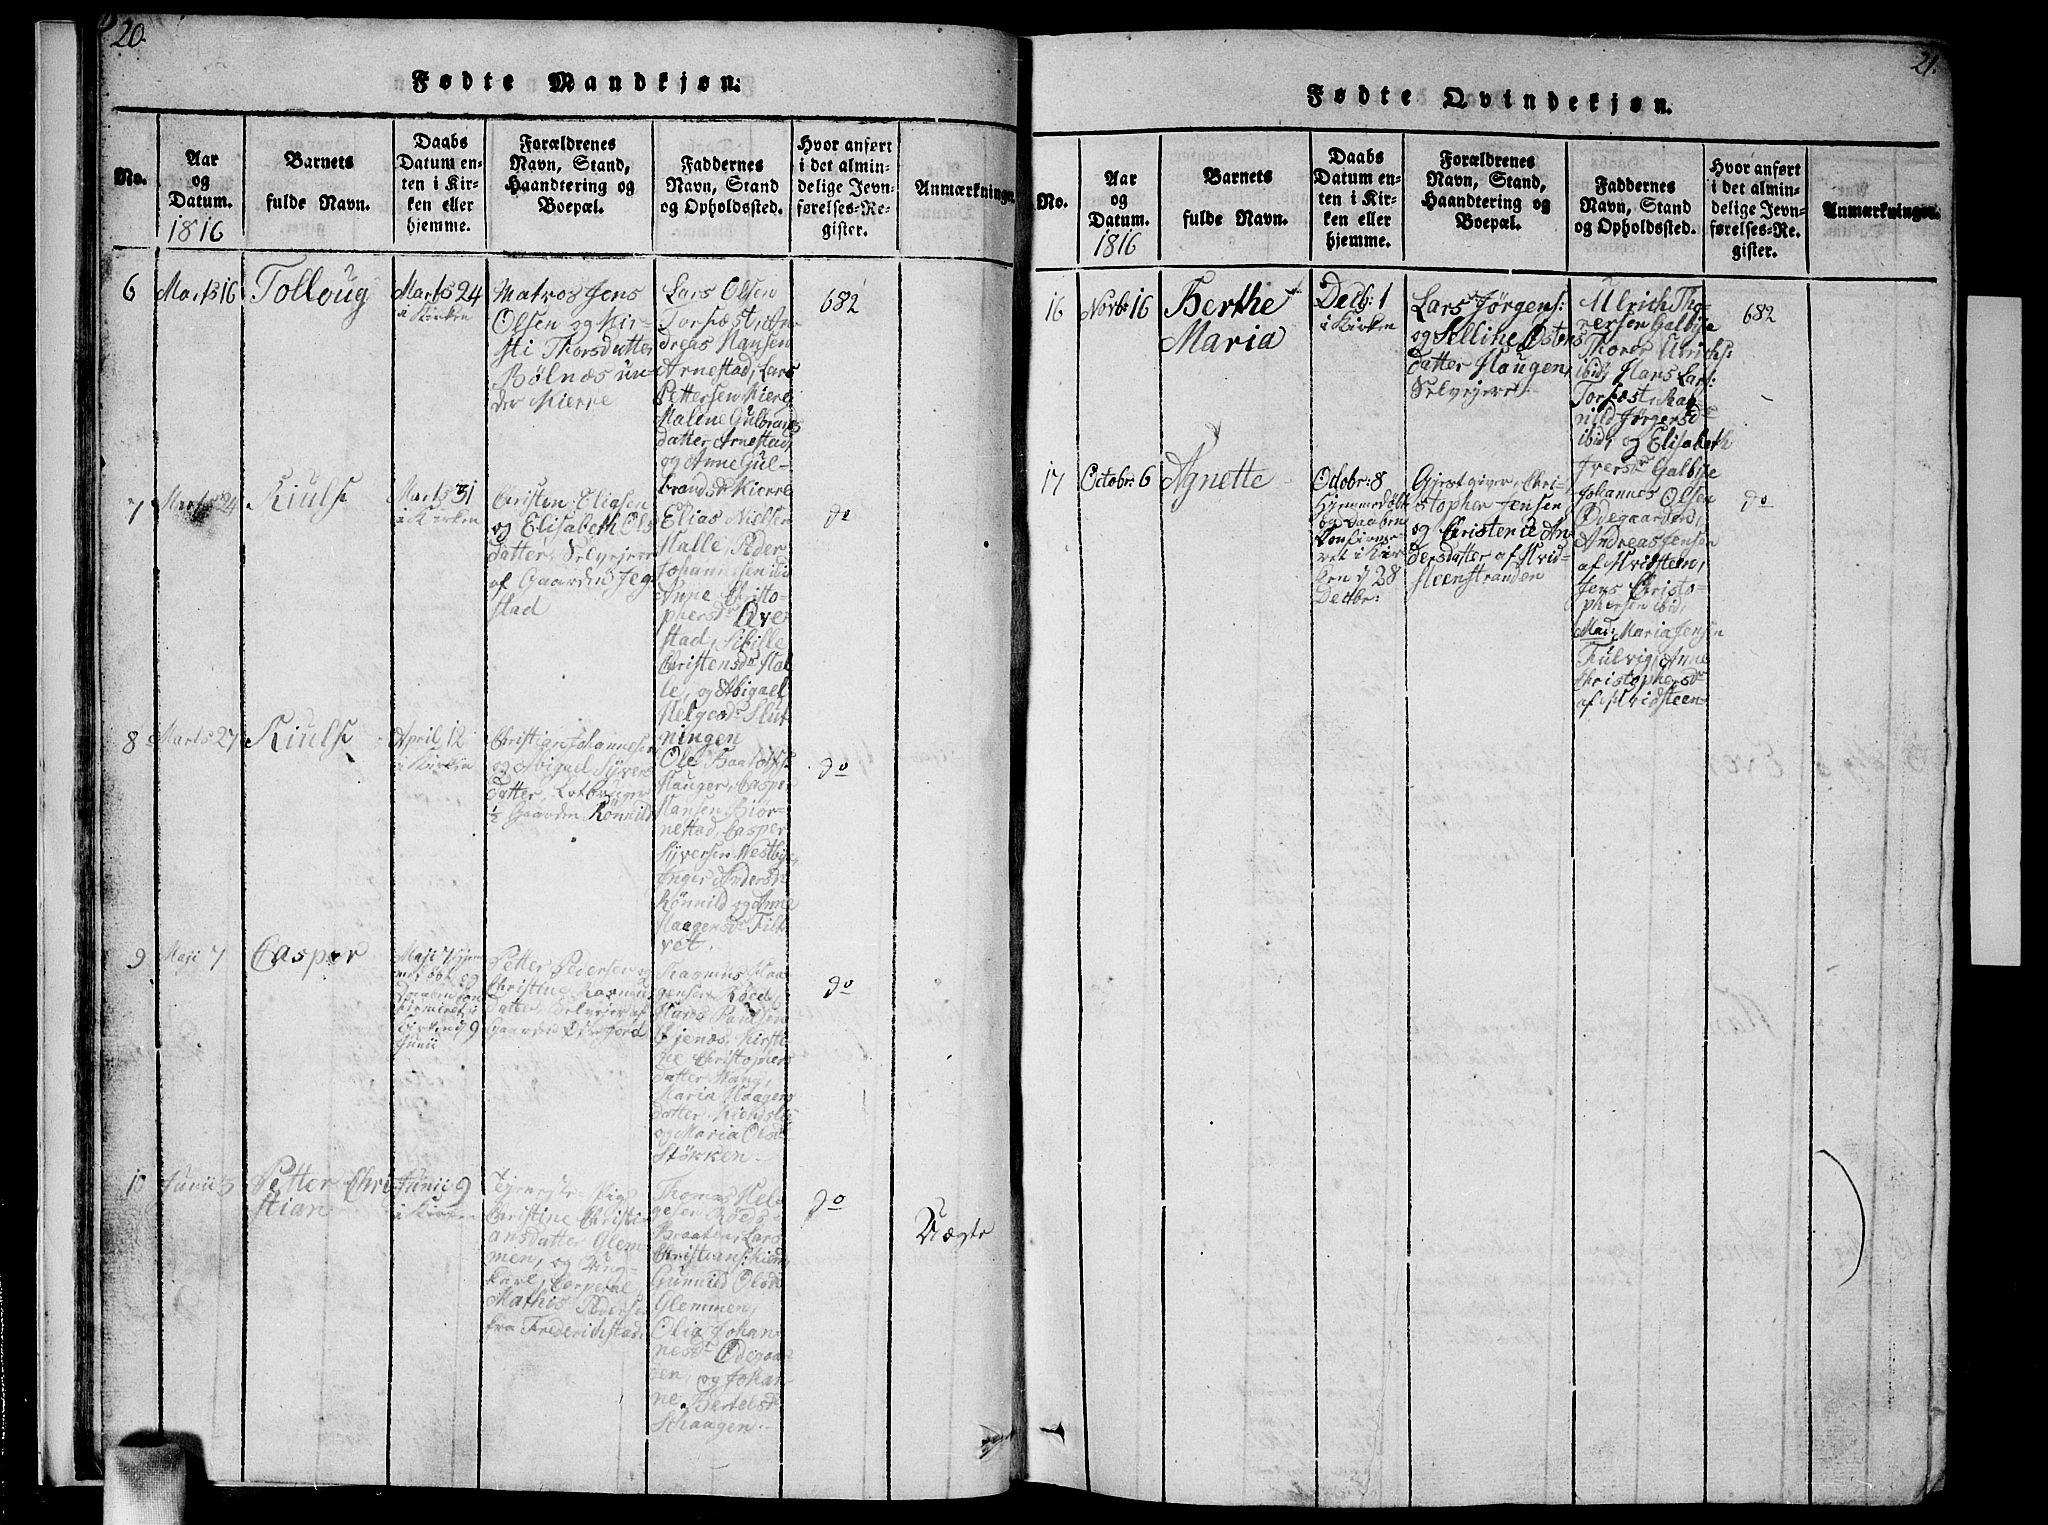 20.
Fødte Mandkjøn:
No.
Aar
og
Datum.
1816
Barnets
fulde Navn.
Daabs
Datum en-
ten i Kir-
ken eller
hjemme.
Forældrenes
Navn, Stand,
Haandtering og
Boepæl.
Faddernes
Navn, Stand
og Opholdssted.
Hvor anført
i det almin-
delige Jevn-
førelses-Re-
gister.
Anmærkninger.
6
Marts 16
Tolloug
Marts 24
i Kirken
Matros Jens
Olsen og Kir-
sti Thorsdatter
Bølnæs un-
der Kierre
Lars Olsen
Torpæst, An-
dreas Hansen
Arnestad, Lars
Pettersen Kiere
Malene Gulbrands
datter Arnestad,
og Anne Gul-
brandsdr Kierre
682
7
Marts 24
Kiulse
Marts 31
i Kirken
Christen Eliasen
og Elisabeth Ols
datter, Selvejere
af Gaarden Jeg-
stad
Elias Nielsen
Halle, Peder
Johannesen ibi
Anne Christo-
phersdr Qve-
stad, Sibille
Christensdr Hal-
le, og Abigael
Helgesdr Slut-
ningen
do
8
Marts 27
Kiulse
April 12
i Kirken
Christian Johannesen
og Abigael Syvers
datter,
½ Gaarden Rönnild
Ole
Hauger, Casper
Hansen Biør-
nestad, Casper
Syversen Westbye
Inger Andersdr
Rönnild og Anne
Haagensdr Filt-
vet.
do
9
Maji 7
Casper
Maji 7 hjem-
medøbt og
Daaben con-
firmeret i
Kirken d 9
Junii
Petter Pedersen og
Christine Rasmus
datter, Selvejer af
Gaarden Odersjord
Rasmus Haa-
gensen Röed,
Hans Paulsen
Kirste-
ne Christophers
datter Wang,
Maria Haagens
datter
og Maria Olsdr
Stökken.
do
10
Junii 3
Petter Chri
stian
Junii 9
i Kirken
Tjeneste-Pige
Christine Christi-
ansdatter Glem-
men, og Ung-
karl, Corporal
Mathis Peders:
fra Frederichstad.
Thomas Hel-
gesen Röeds-
Braaten, Lars
Christians:
Gunnild Olsdr
Glemmen,
Olia Johan-
nesdr Ödegaar-
den, og Johan-
ne Bertelsdr
Skaagen.
do
Uægte
21.
Fødte Qvindekjøn.
No.
Aar
og
Datum.
1816
Barnets
fulde Navn.
Daabs
Datum en-
ten i Kir-
ken eller
hjemme.
Forældrenes
Navn, Stand,
Haandtering og
Boepæl.
Faddernes
Navn, Stand
og Opholdssted.
Hvor anført
i det almin-
delige Jevn-
førelses-Re-
gister.
Anmærkninger.
16
Novbr 16
Berthe
Maria
Decb: 1
i Kirken
Lars Jörgens:
og Elline Ostens
datter Haugen,
Selvejere
Ulrich Tho-
rersen Galbye
Thorer Ulrichs:
ibid, Hans Lars:
Torpæst, Rag-
nild Jörgensdr
ibid, og Elisabeth
Iversdr Galbye
682
17
Octobr: 6
Agnette
Octobr: 8
Hjemmedöbt
og Daaben
Confirme-
ret i Kir-
ken d 28
Decbr:
Gjestgiver Chri-
stopher Jensen
og Christence An-
dersdatter af Hvid-
steenstranden
Johannes Olsen
Ödegaarden,
Andreas Jensen
af Hvidsteen,
Jens Christo-
phersen ibid,
Mad: Maria Jensen
Fulvig, Anne
Christophersdr
af Hvidsteen
do